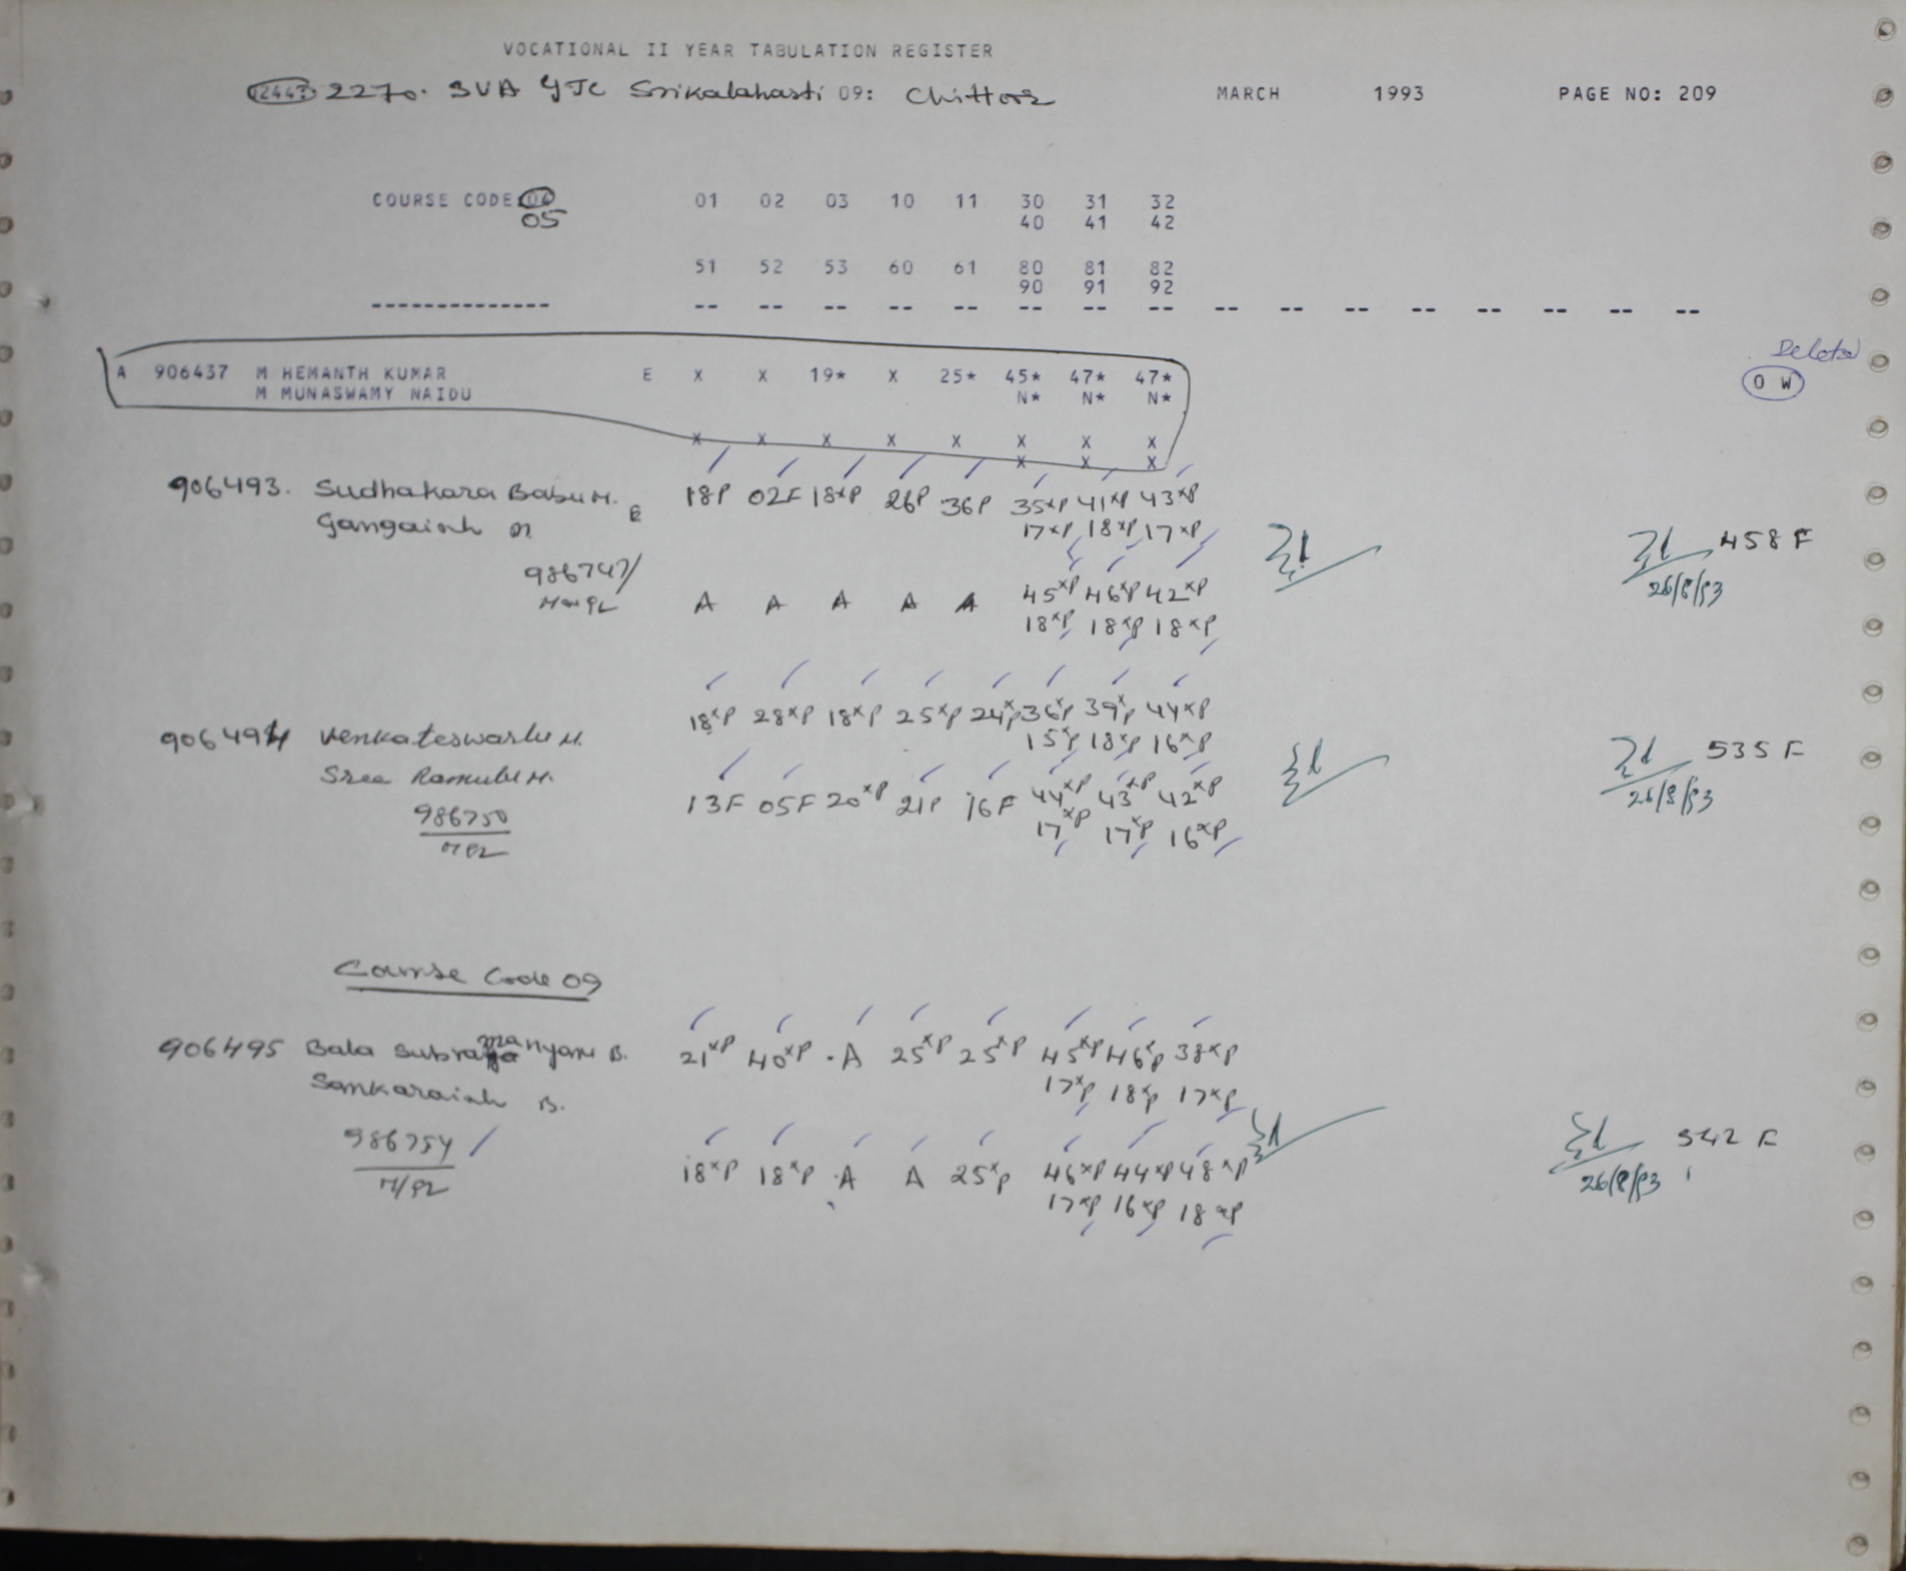 VOCATIONAL II YEAR TABULATION REGISTER
2447 2270. SVA GJC Srikalahasti 09: Chittoor MARCH 1993 PAGE NO: 209
COURSE CODE: 01 02 03 10 11 30 31 32
05 40 41 42
51 52 53 60 61 80 81 82
90 91 92
-------------- -- -- -- -- -- -- -- -- -- -- -- -- -- -- -- --
Deleted
A 906437 M HEMANTH KUMAR E X X 19* X 25* 45* 47* 47* O W
M MUNASWAMY NAIDU N* N* N*
X X X X X X X X
X X X
906493. Sudhakara Babu M. E 18P 02F 18xP 26P 36P 35xP 41xP 43xP
Gangaiah M 17xP 18xP 17xP 458 F
986747/ A A A A A 45xP 46xP 42xP 26/8/93
18xP 18xP 18xP
18xP 28xP 18xP 25xP 24xP 36xP 39xP 44xP
906494 Venkateswarlu M. 15xP 18xP 16xP 535 F
Sree Ramulu M. 13F 05F 20xP 21P 16F 44xP 43xP 42xP 26/8/93
986750 17xP 17xP 16xP
M/92
Course Code 09
906495 Bala Subramanyam B. 21xP 40xP A 25xP 25xP 45xP 46xP 38xP
Sankaraiah B. 17xP 18xP 17xP
986754 / 18xP 18xP A A 25xP 46xP 44xP 48xP 542 F
M/92 17xP 16xP 18xP 26/8/93